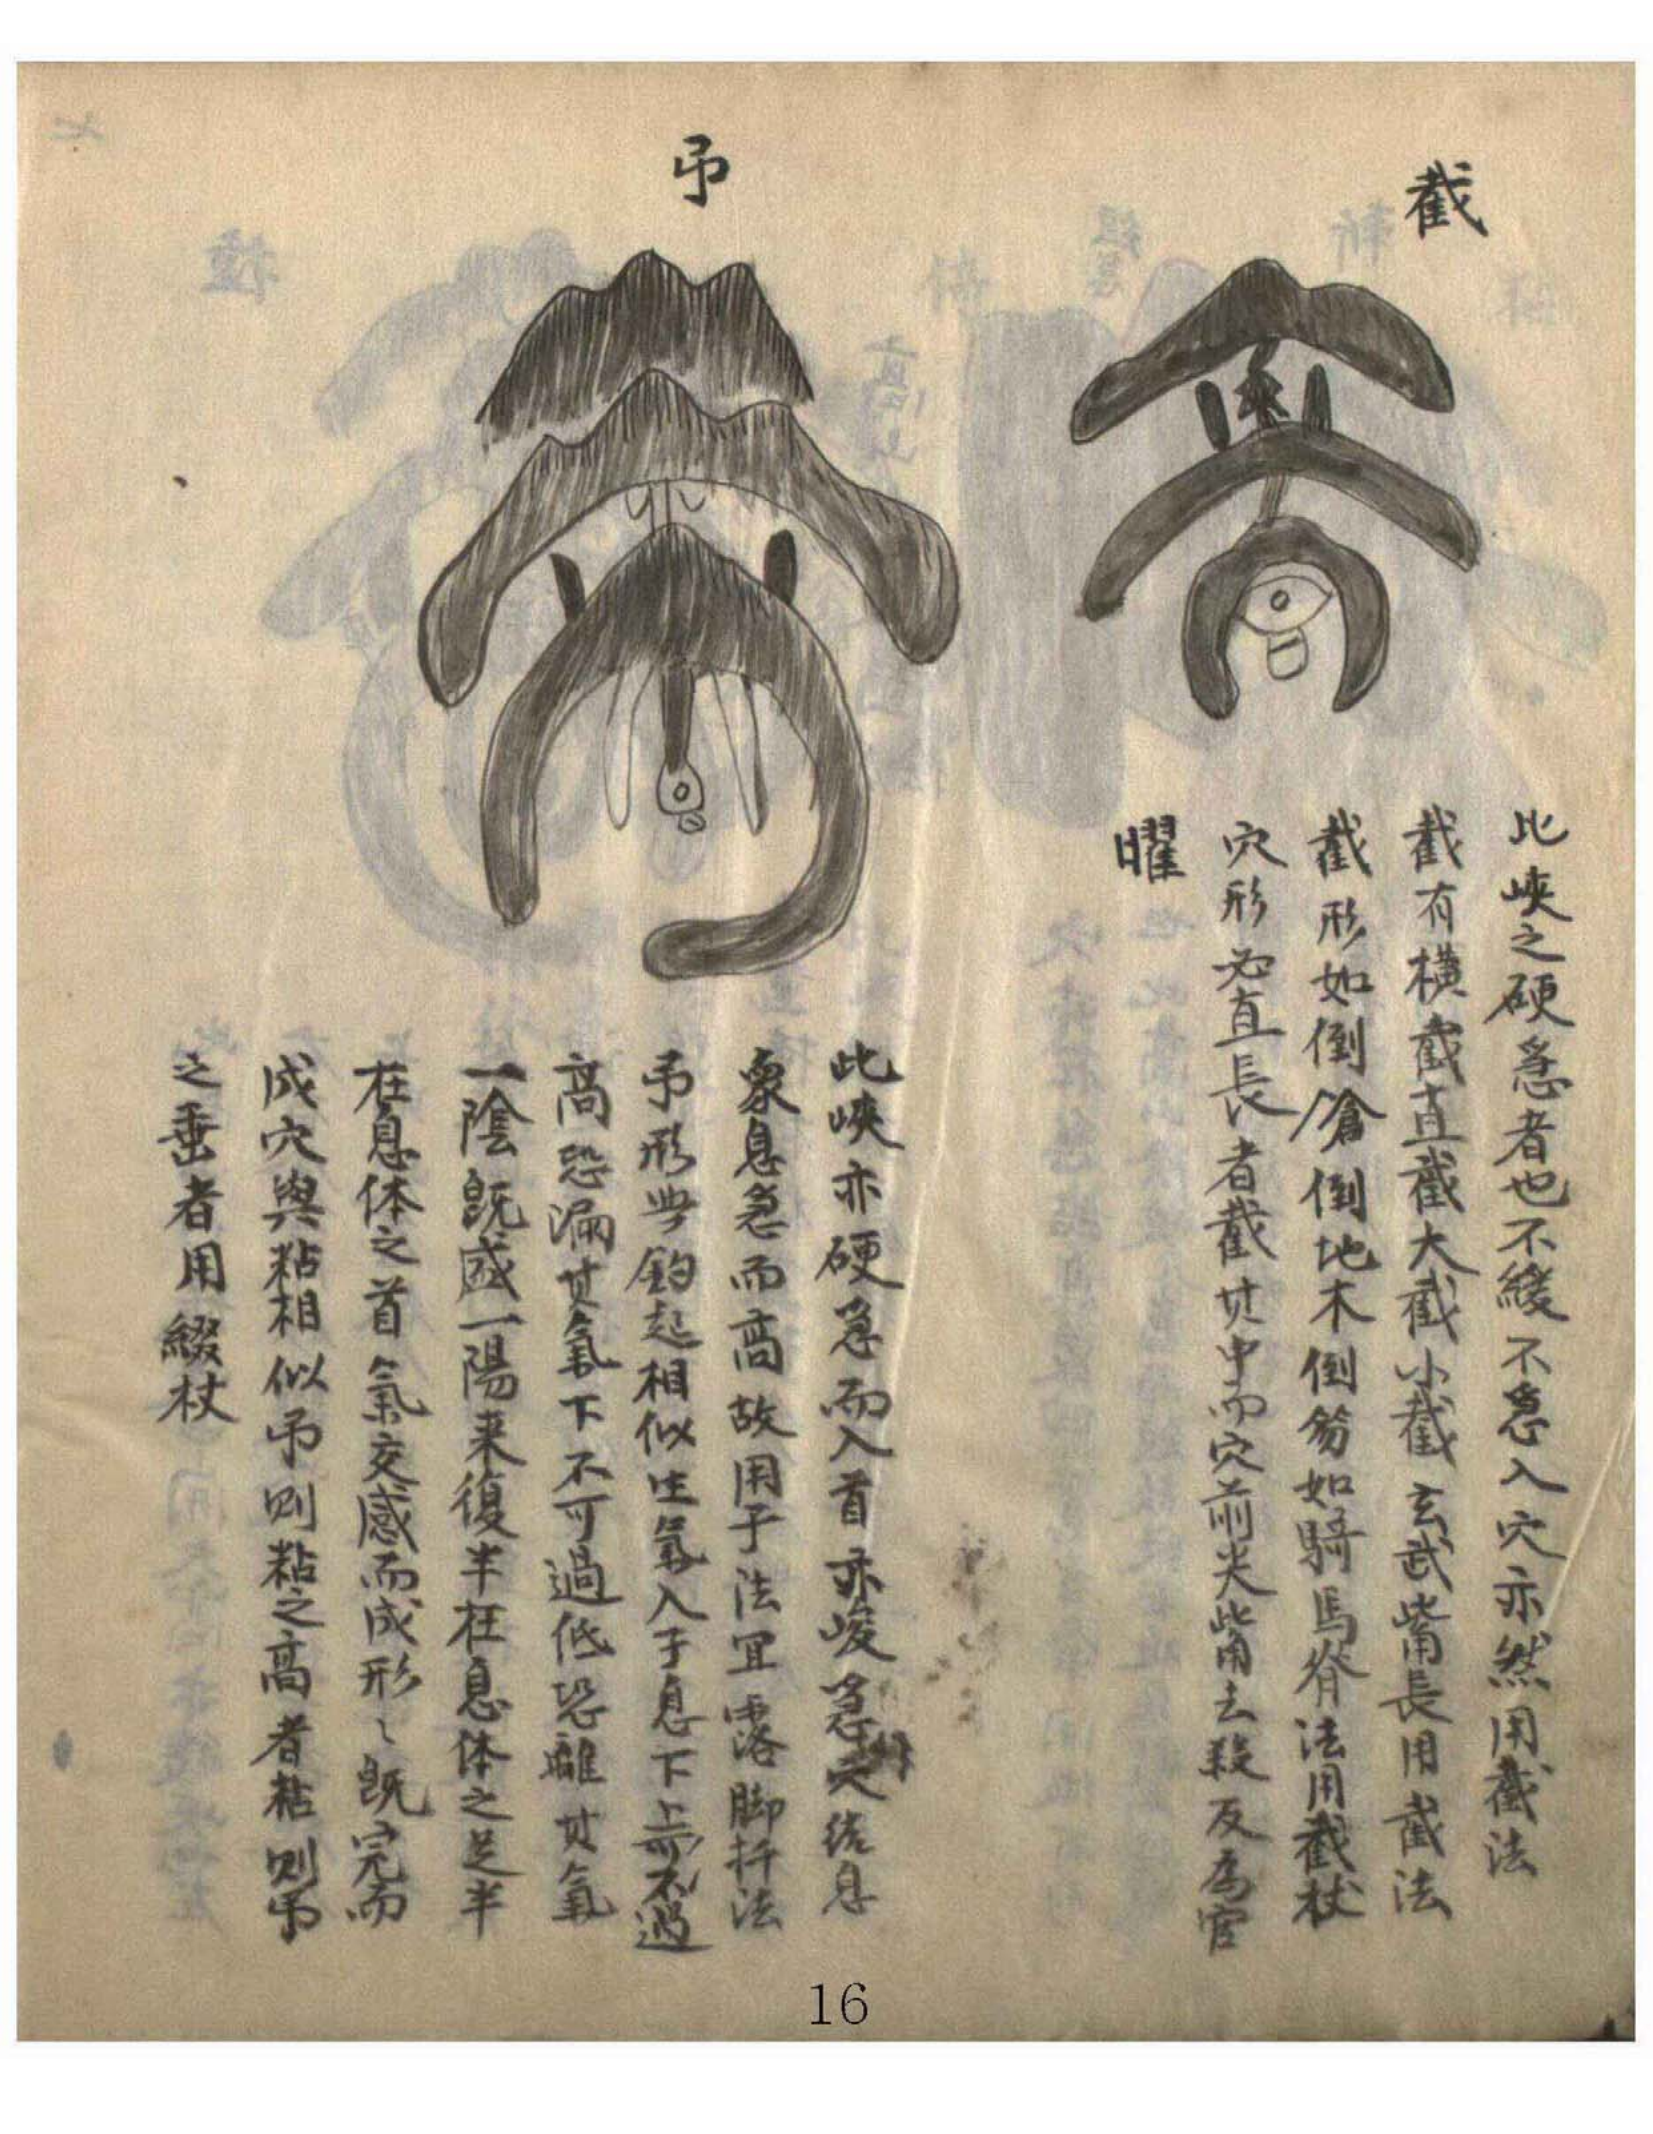 截
此峽之硬急者也不緩不急入穴亦然用截法
截有橫截直截大截小截玄武嘴長用截法
截形如倒滄倒地木倒笏如騎馬脊法用截杖
穴形必直長者截其中而穴前尖嘴去殺反為官
曜
吊
此峽亦硬急而入首亦峻急結息
象息急而高故用于法宜露脚扦法
吊形與鈎起相似生氣入于息下上不過
高恐漏其氣下不可過低恐離其氣
一陰既盛一陽来復半在息体之足半
在息体之首氣交感而成形〻既完而
成穴與粘相似吊则粘之高者粘则吊
之垂者用綴杖
16